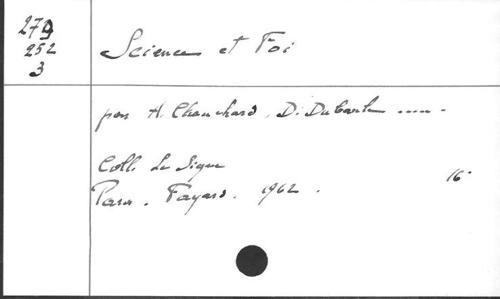 279
252
3
Science et Foi
par A. Chauchard, D. Dubarle .....
Coll. Le Signe
Paris. Fayard. 1962. 16°